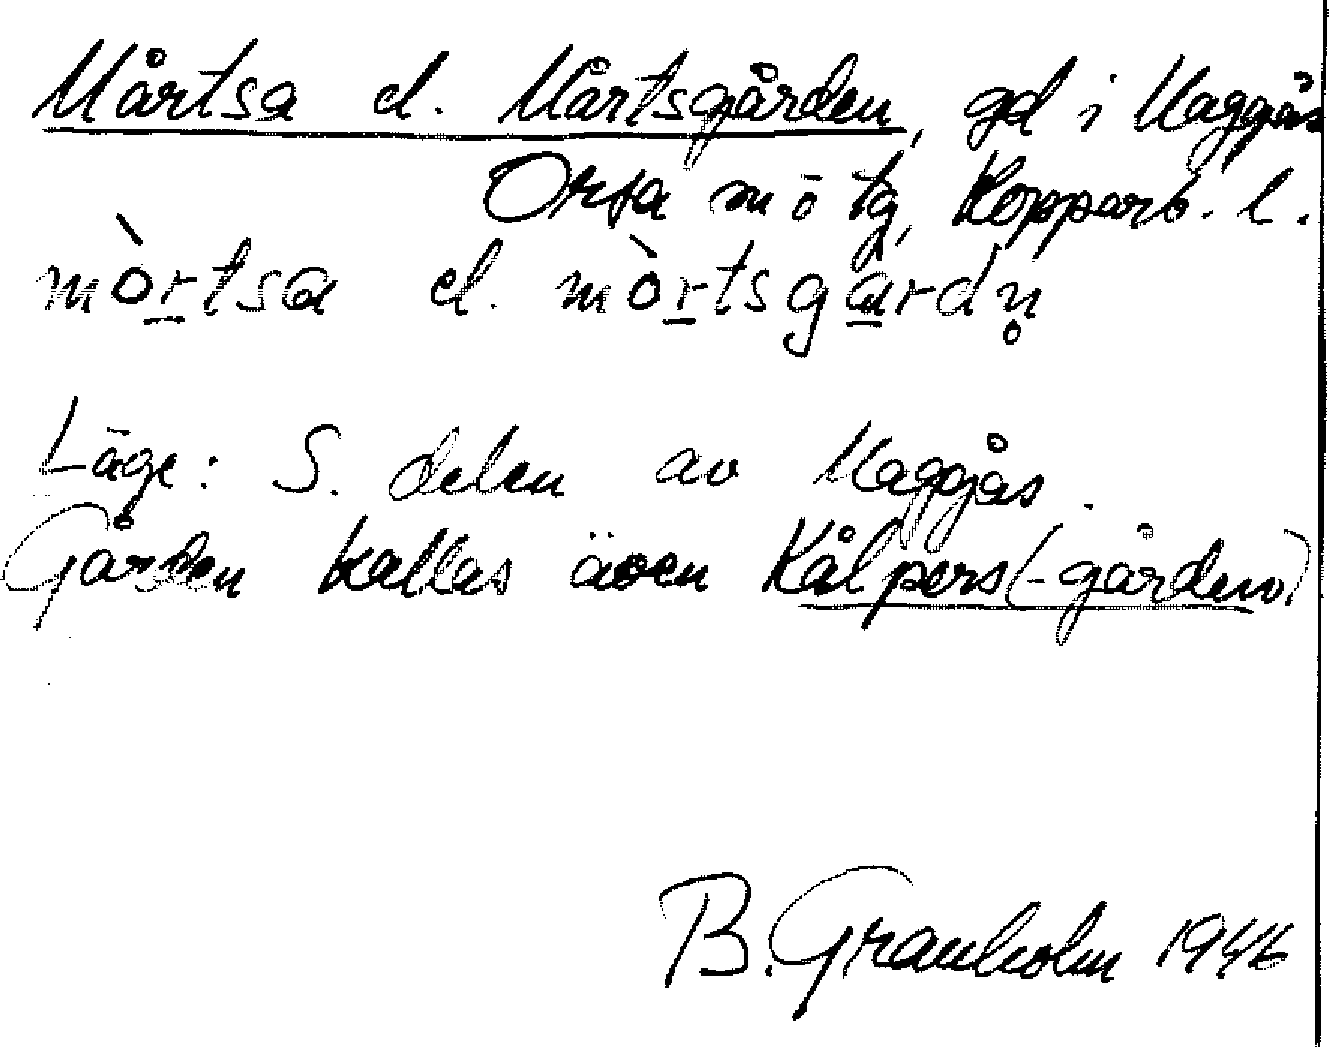 Mårtsa el. Mårtsgården, gd i Maggås
Orsa sn o tg, Kopparb. l.
mòrtsa el. mòrtsgardn̥
Läge: S. delen av Maggås.
Gården kallas även Kålpers(-gården)
B. Granholm 1946